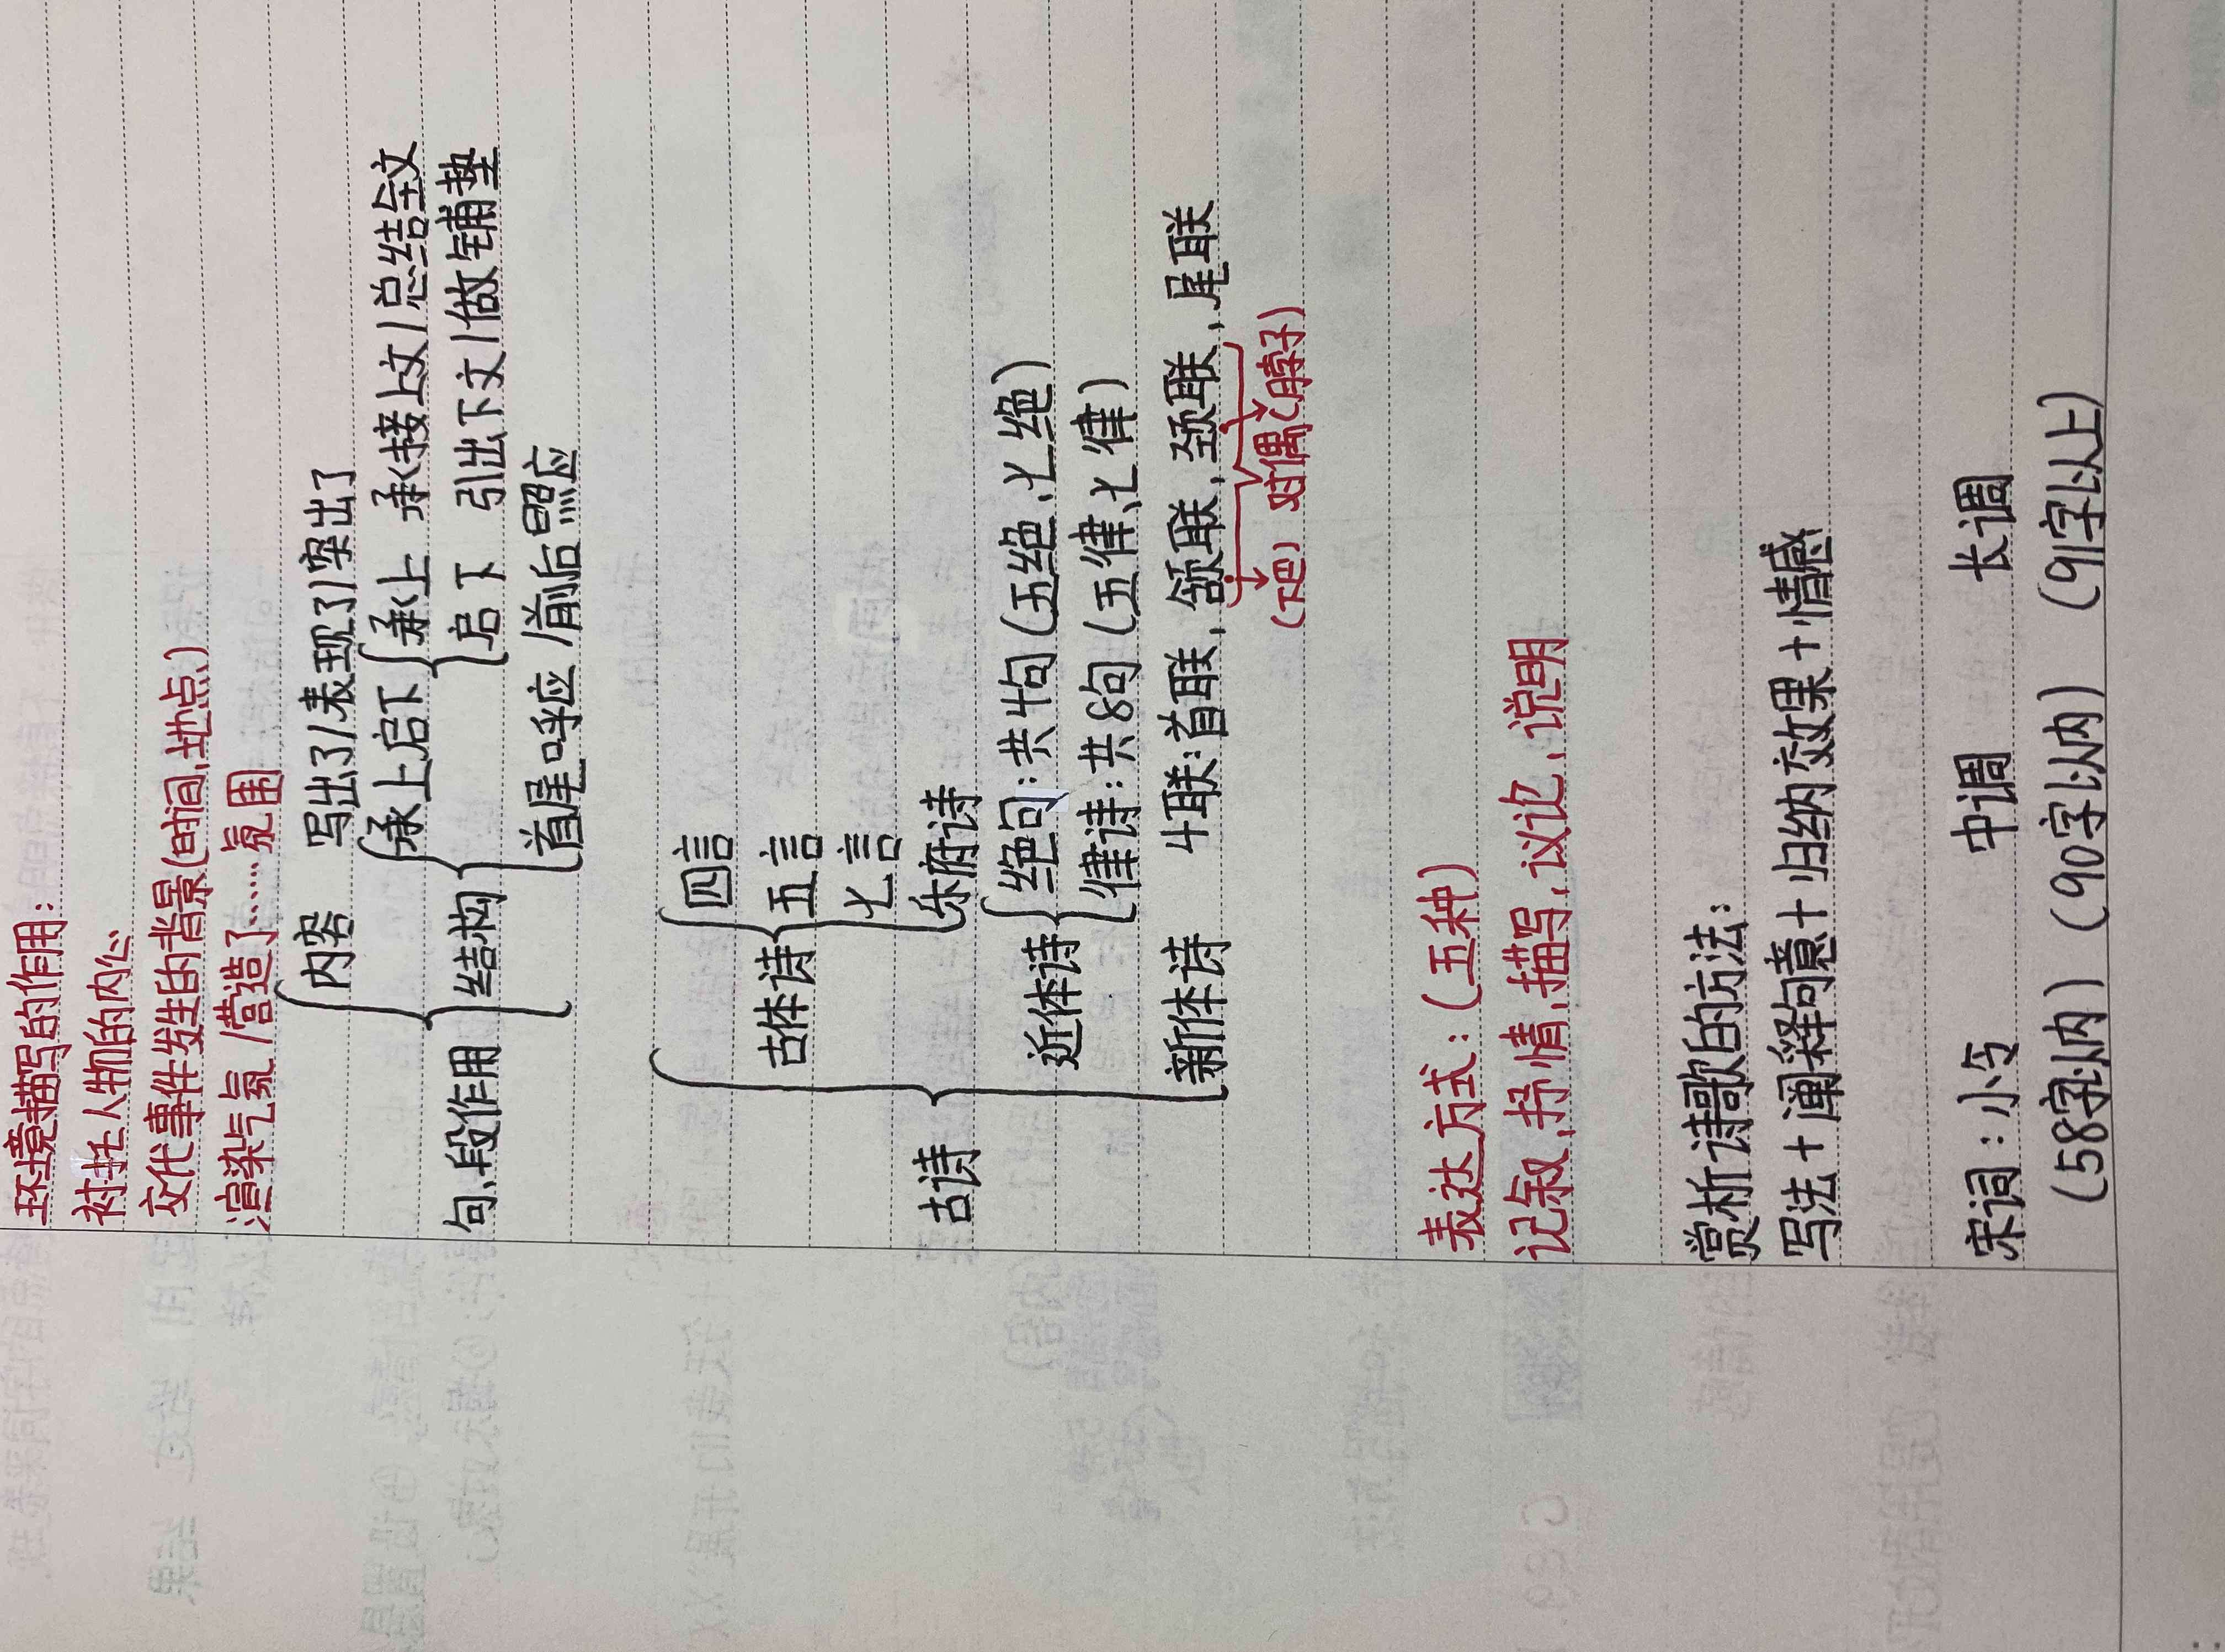 环境描写的作用:
衬托人物的内心
交代事件发生的背景(时间,地点)
渲染气氛/营造了……氛围
内容 写出了/表现了/突出了
句,段作用 结构 承上启下 承上 承接上文/总结全文
启下 引出下文/做铺垫
首尾呼应/前后照应
四言
古体诗 五言
七言
古诗 乐府诗
近体诗 绝句:共4句(五绝,七绝)
律诗:共8句(五律,七律)
新体诗 4联:首联,颔联,颈联,尾联
(下巴) 对偶(脖子)
表达方式:(五种)
记叙,抒情,描写,议论,说明
赏析诗歌的方法:
写法+阐释句意+归纳效果+情感
宋词:小令 中调 长调
(58字以内) (90字以内) (91字以上)